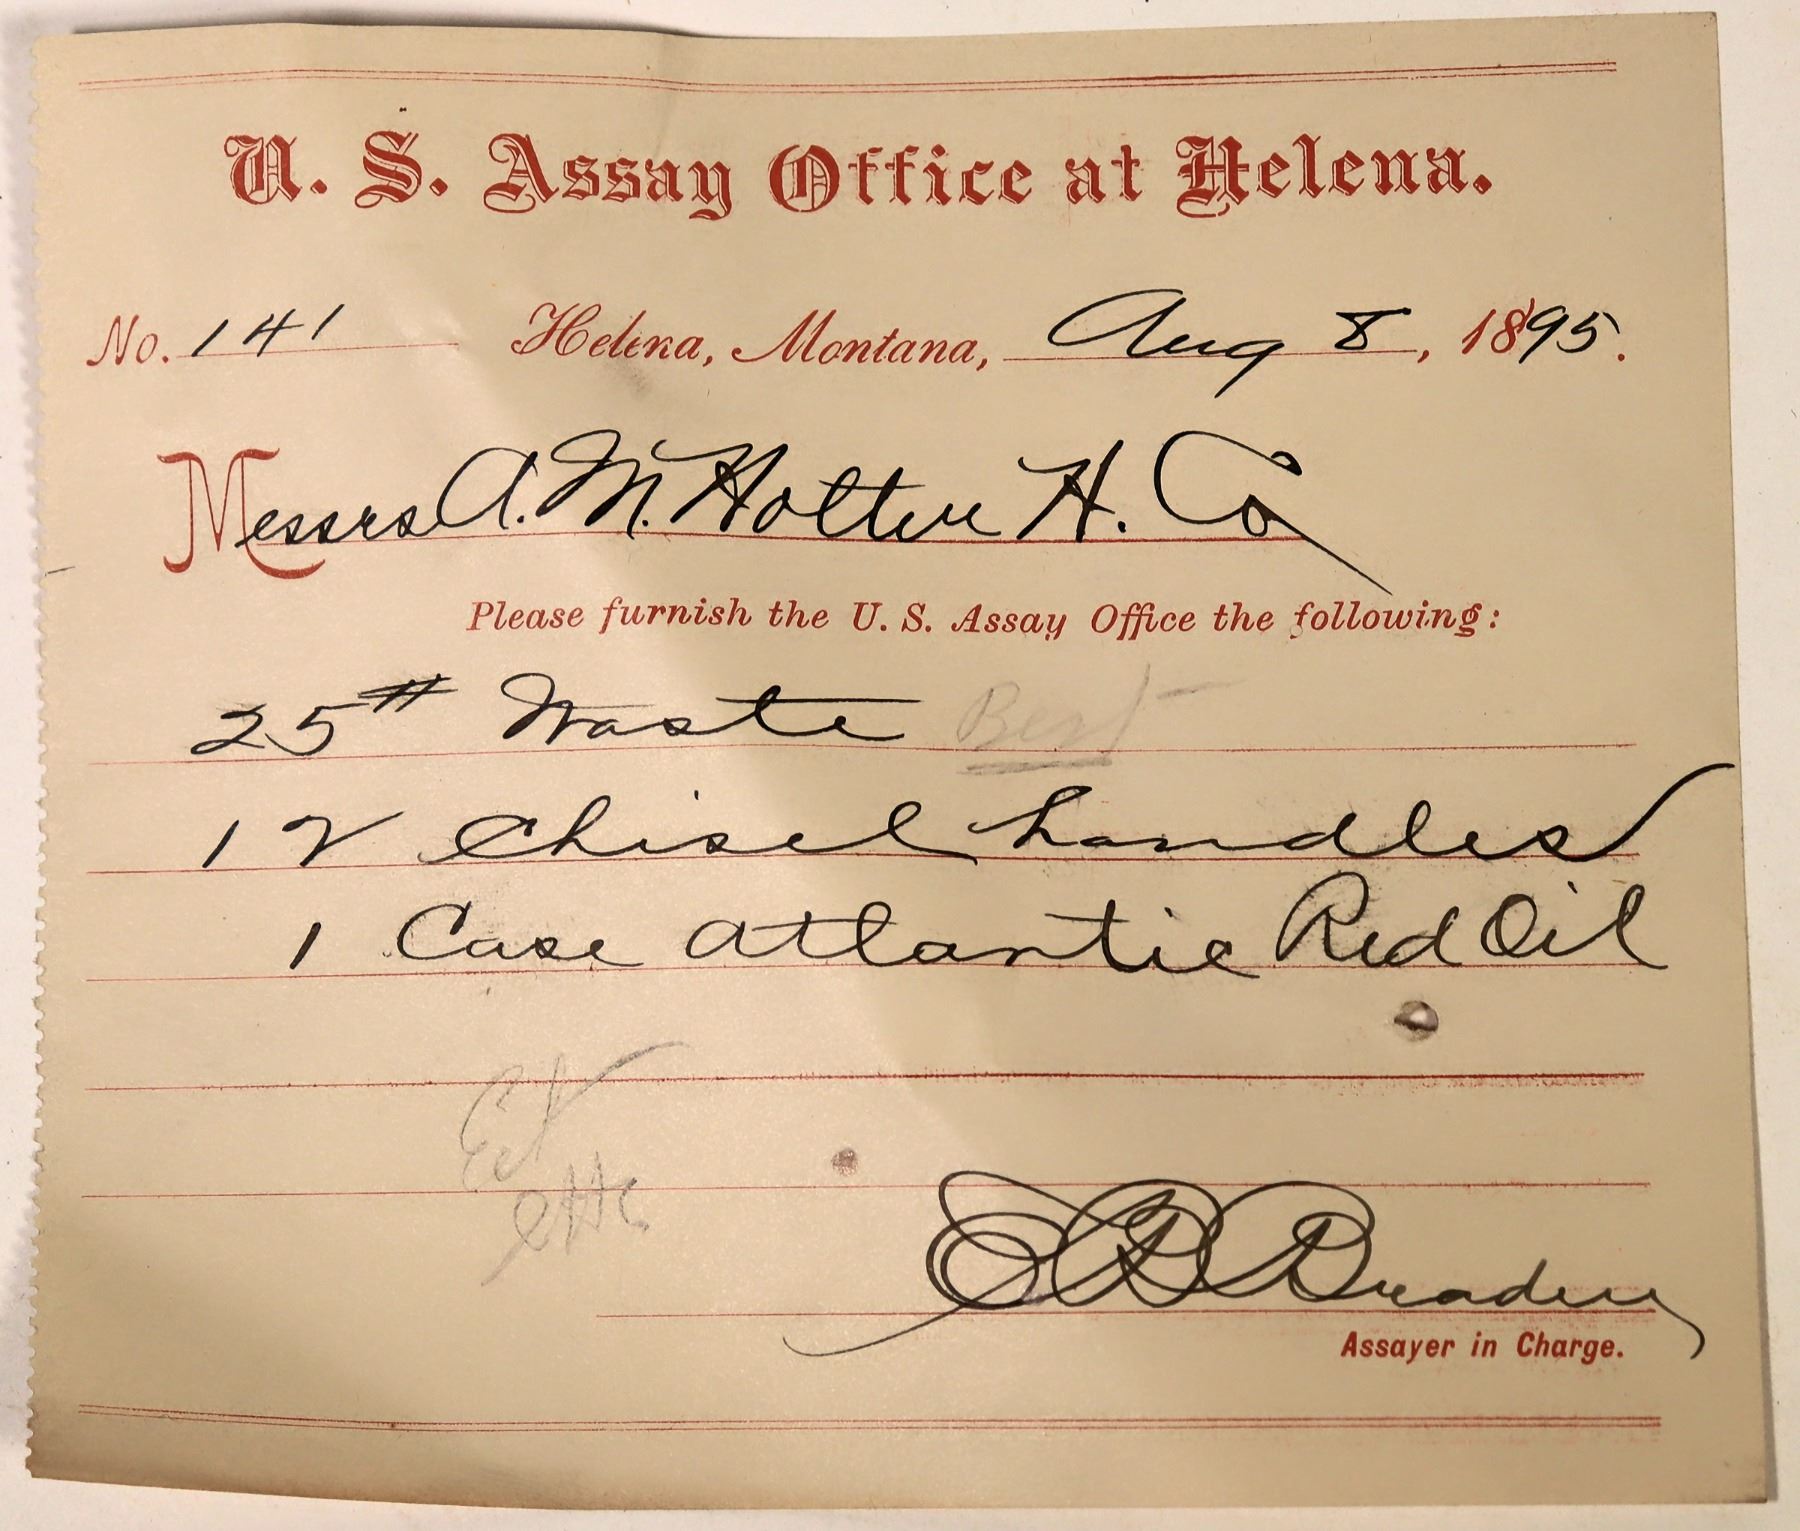 U. S. Assay Office at Helena.
No. 141 Helena, Montana, Aug 8, 1895.
Messrs A. M. Holter H. Co
Please furnish the U. S. Assay Office the following:
25# Waste Best
12 Chisel handles
1 Case Atlantic Red Oil
Braden
Assayer in Charge.